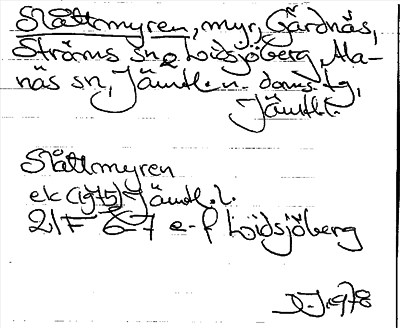 Slåttmyren, myr, Gärdnäs,
Ströms sn o Lidsjöberg, Ala-
näs sn, Jämtl. n. doms tg,
Jämtl.
Slåttmyren
ek (1975) Jämtl. l.
21F 6-7 e-f Lidsjöberg
1978